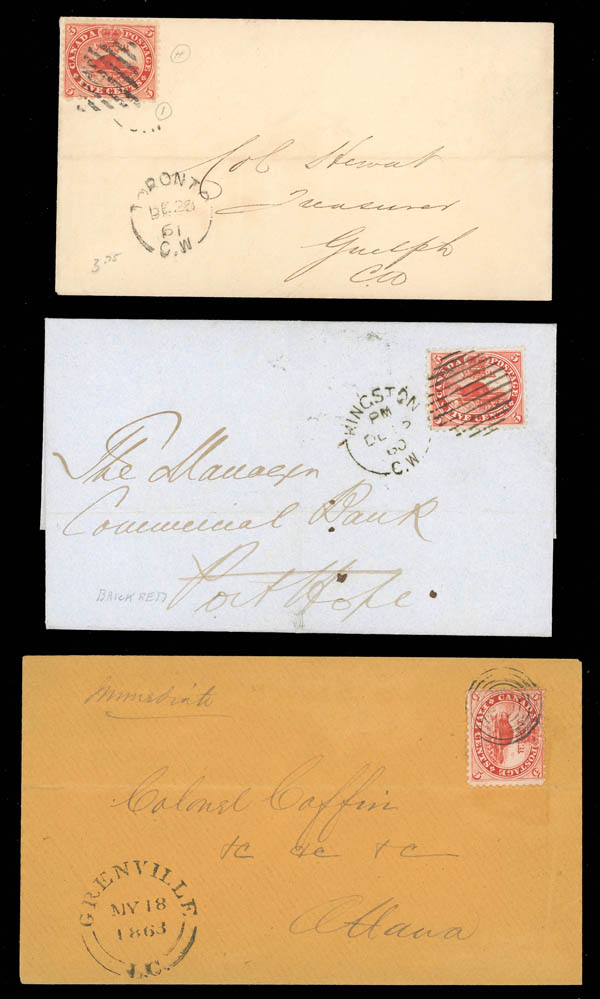 CANADA POSTAGE
5 FIVE CENTS 5
H
1
C.W
Col Hewat
Treasurer
Guelph
C.W
TORONTO
DE 28
61
C.W
3.75
CANADA POSTAGE
5 FIVE CENTS 5
KINGSTON
PM
DE
60
C.W
The Manager
Commercial Bank
Port Hope
BRICK RED
Immediate
CANADA POSTAGE
5 FIVE CENTS 5
Colonel Coffin
&c &c &c
Ottawa
GRENVILLE
MY 18
1863
L.C.